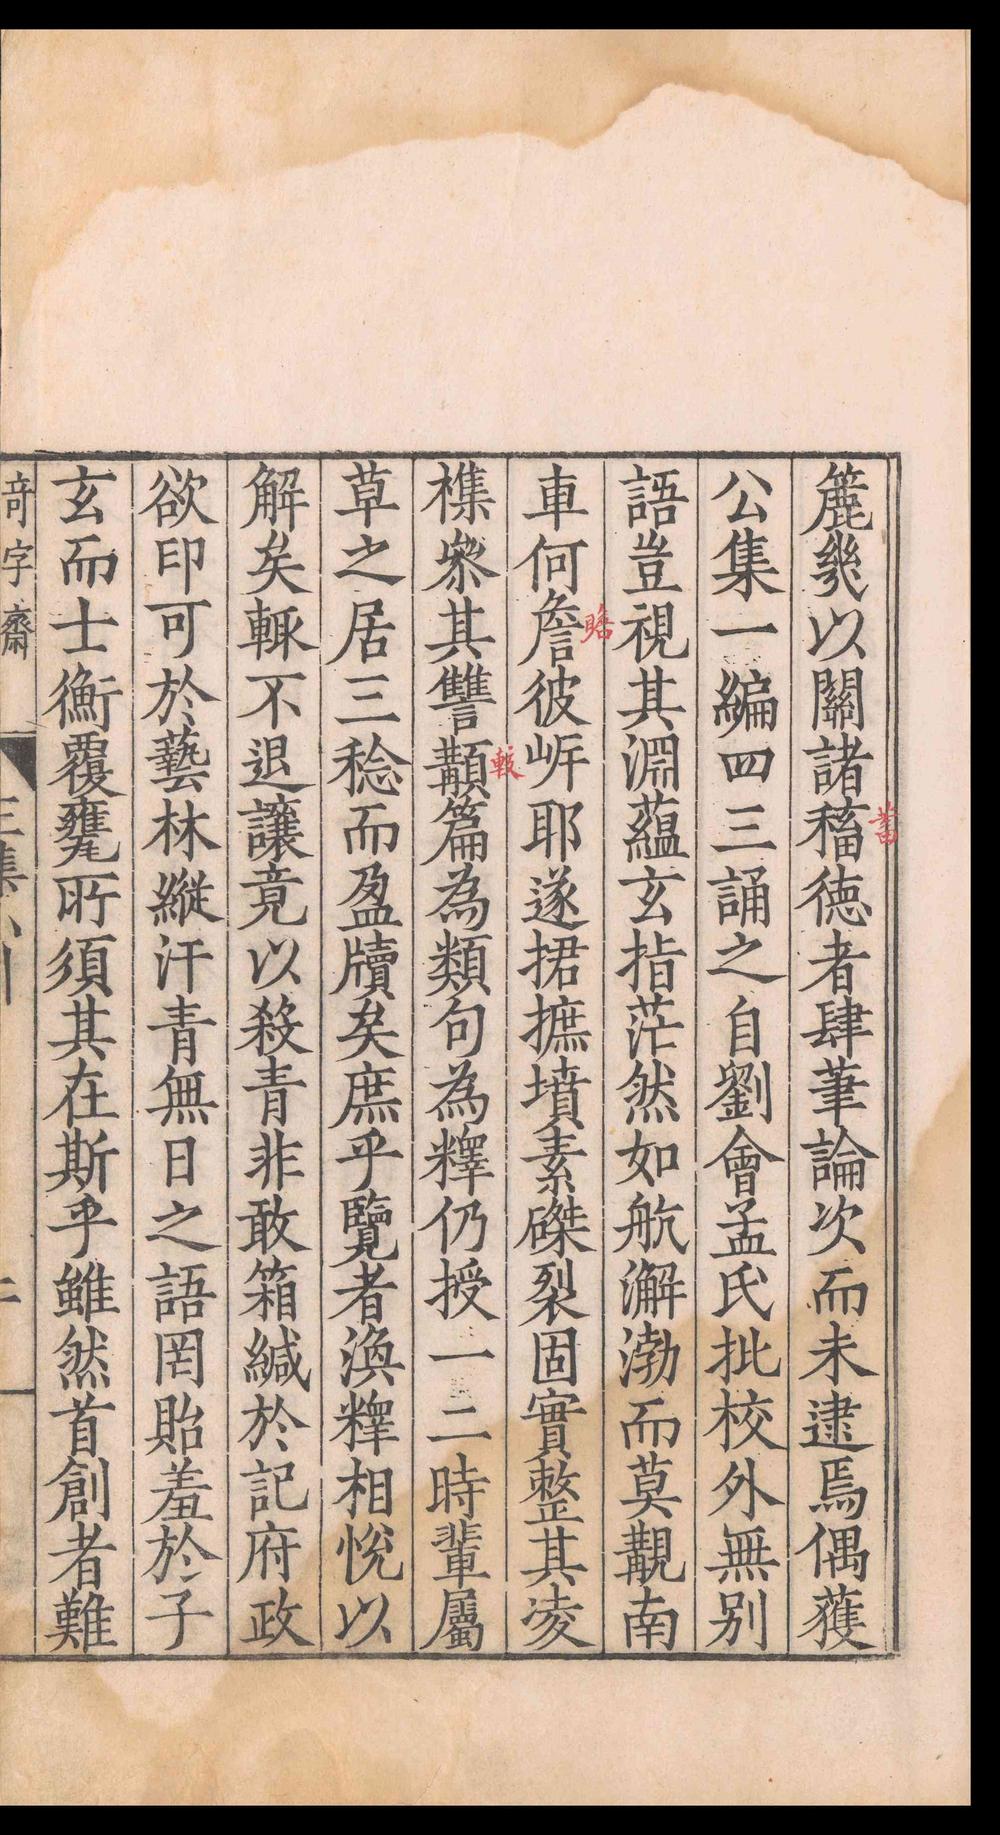 簏幾以關諸稸德者肆筆論次而未逮焉偶獲
公集一編四三誦之自劉會孟氏批校外無别
語豈視其淵蘊玄指茫然如航澥渤而莫覯南
車何詹彼岸耶遂捃摭墳素磔裂固實整其凌
襍叅其讐顜篇為類句為釋仍授一二時輩屬
草之居三稔而盈牘矣庶乎覽者渙釋相悅以
解矣輒不退讓竟以殺青非敢箱緘於記府政
欲印可於藝林縱汗青無日之語罔貽羞於子
玄而士衡覆甕所須其在斯乎雖然首創者難
蓄
瞻
較
奇字齋